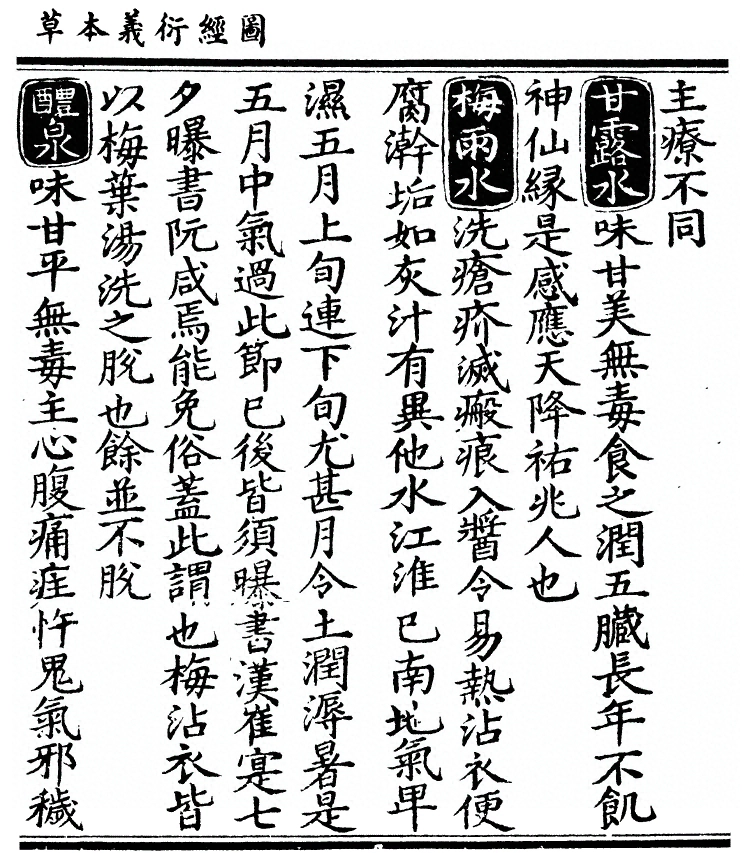 圖經衍義本草
主療不同
甘露水味甘美無毒食之潤五臓長年不飢
神仙縁是感應天降祐兆人也
梅雨水洗瘡疥滅瘢痕入醬令易熱沾衣便
腐澣垢如灰汁有異他水江淮已南地氣卑
濕五月上旬連下旬尤甚月令土潤溽暑是
五月中氣過此節已後皆須曝書漢崔寔七
夕曝書阮咸焉能免俗蓋此謂也梅沾衣皆
以梅葉湯洗之脫也餘並不脫
醴泉味甘平無毒主心腹痛疰忤鬼氣邪穢